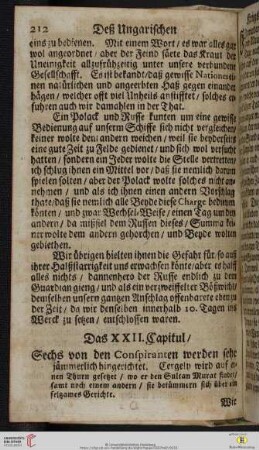 212 Deß Ungarischen
eins zu bedienen. Mit einem Wort / es war alles gar
wol angeordnet / aber der Feind säete das Kraut der
Uneinigkeit allzufrühzeitig unter unsere verbundene
Gesellschafft. Es ist bekandt / daß gewisse Nationen ei-
nen natürlichen und angeerbten Haß gegen einander
hägen / welcher offt viel Unheils anstifftet / solches er-
fuhren auch wir damahlen in der That.
Ein Polack und Russe kunten um eine gewisse
Bedienung auf unserm Schiffe sich nicht vergleichen /
keiner wolte dem andern weichen / weil sie beyderseits
eine gute Zeit zu Felde gedienet / und sich wol versucht
hatten / sondern ein Jeder wolte die Stelle vertretten /
ich schlug ihnen ein Mittel vor / daß sie nemlich darum
spielen solten / aber der Polack wolte solches nicht an-
nehmen / und als ich ihnen einen andern Vorschlag
thate / daß sie nemlich alle Beyde diese Charge bedienen
könten / und zwar Wechsel-Weise / einen Tag um den
andern / da mißfiel dem Russen dieses / Summa kei-
ner wolte dem andern gehorchen / und Beyde wolten
gebiethen.
Wir übrigen hielten ihnen die Gefahr für / so aus
ihrer Halßstarrigkeit uns erwachsen könte / aber es half
alles nichts / dannenhero der Russe endlich zu den
Guardian gieng / und als ein verzweiffelter Bößwicht /
demselben unsern gantzen Anschlag offenbarete eben zu
der Zeit / da wir denselben innerhalb 10. Tagen ins
Werck zu setzen / entschlossen waren.
Das XXII. Capitul /
Sechs von den Conspiranten werden sehr
jämmerlich hingerichtet. Cergely wird auf ei-
nen Thurn gesetzet / wo er den Sultan Murat
samt noch einem andern / sie bekümmern sich über ein
selzames Gerichte.
Wir